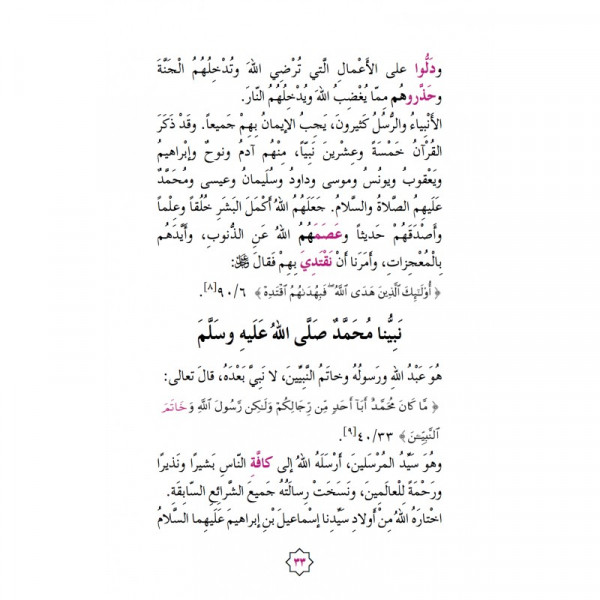 ودَلُّوا على الأَعْمالِ الَّتي تُرْضِي اللهَ وَتُدْخِلُهُمُ الْجَنَّةَ
وحَذَّروهُم مِمّا يُغْضِبُ اللهَ ويُدْخِلُهُمُ النّارَ.
الأَنْبِياءُ والرُّسُلُ كَثيرونَ، يَجِبُ الإيمانُ بِهِمْ جَميعاً. وقَدْ ذَكَرَ
القُرْآنُ خَمْسَةً وعِشْرينَ نَبِيّاً، مِنْهُم آدمُ ونوحٌ وإبْراهيمُ
ويَعْقوبُ ويونُسُ وموسى وداودُ وسُلَيمانُ وعيسى ومُحَمَّدٌ
عَلَيهِمُ الصَّلاةُ والسَّلامُ. جَعَلَهُمُ اللهُ أَكْمَلَ البَشَرِ خُلُقاً وعِلْماً
وأَصْدَقَهُمْ حَديثاً وعَصَمَهُمُ اللهُ عَنِ الذُّنوبِ، وأَيَّدَهُم
بِالْمُعْجِزاتِ، وأَمَرَنا أَنْ نَقْتَدِيَ بِهِمْ فَقالَ ﷻ:
﴿ أُوْلَـٰٓئِكَ ٱلَّذِينَ هَدَى ٱللَّهُ ۖ فَبِهُدَىٰهُمُ ٱقْتَدِهْ ﴾ ٩٠/٦[٨].
نَبِيُّنا مُحَمَّدٌ صَلَّى اللهُ عَلَيهِ وسَلَّمَ
هُوَ عَبْدُ اللهِ ورَسولُهُ وخاتَمُ النَّبِيِّينَ، لا نَبِيَّ بَعْدَهُ، قالَ تعالى:
﴿ مَّا كَانَ مُحَمَّدٌ أَبَآ أَحَدٍ مِّن رِّجَالِكُمْ وَلَـٰكِن رَّسُولَ ٱللَّهِ وَخَاتَمَ
ٱلنَّبِيِّـۧنَ ﴾ ٤٠/٣٣[٩].
وهُوَ سَيِّدُ المُرْسَلينَ، أَرْسَلَهُ اللهُ إلى كافَّةِ النّاسِ بَشيرًا ونَذيرًا
ورَحْمَةً لِلْعالَمينَ، ونَسَخَتْ رِسالَتُهُ جَميعَ الشَّرائِعِ السّابِقَةِ.
اخْتارَهُ اللهُ مِنْ أَولادِ سَيِّدِنا إسْماعيلَ بْنِ إبراهيمَ عَلَيهِما السَّلامُ
٣٣